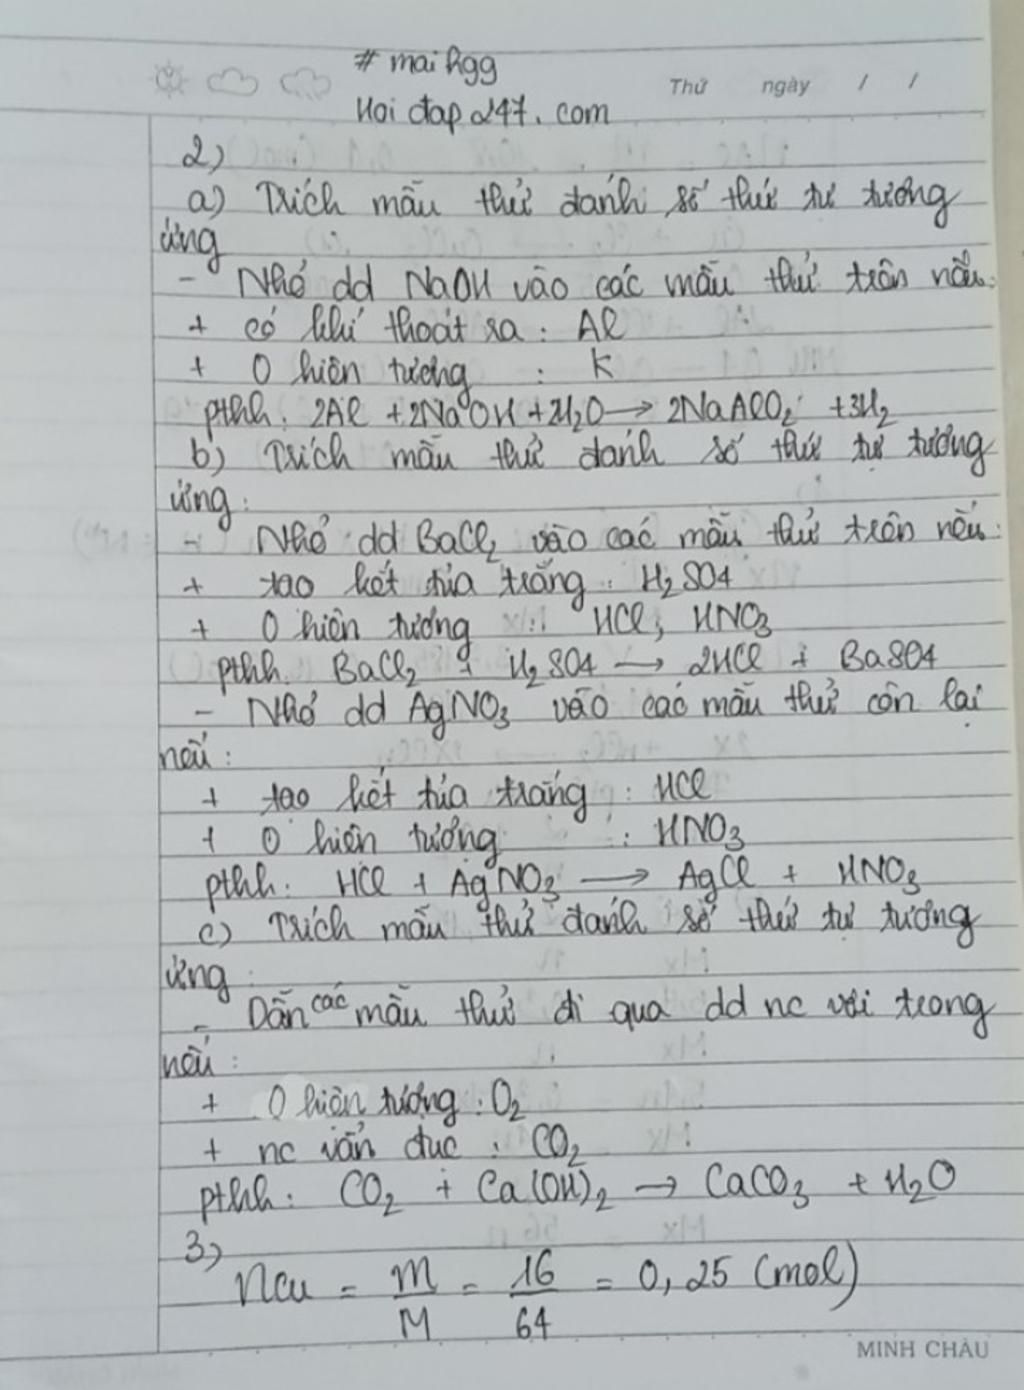 # maihgg
Thứ ngày / /
Hoi đap 247. com
2)
a) Trích mẫu thử đánh số thứ tự tương
ứng
- Nhỏ dd NaOH vào các mẫu thử trên nếu:
+ có khí thoát ra : Al
+ 0 hiện tượng : K
pthh: 2Al + 2NaOH + 2H₂O → 2NaAlO₂ + 3H₂
b) Trích mẫu thử đánh số thứ tự tương
ứng:
- Nhỏ dd BaCl₂ vào các mẫu thử trên nếu:
+ tạo kết tủa trắng : H₂SO4
+ 0 hiện tượng : HCl, HNO₃
pthh. BaCl₂ + H₂SO4 → 2HCl + BaSO4
- Nhỏ dd AgNO₃ vào các mẫu thử còn lại
nếu :
+ tạo kết tủa trắng : HCl
+ 0 hiện tượng : HNO₃
pthh: HCl + AgNO₃ → AgCl + HNO₃
c) Trích mẫu thử đánh số thứ tự tương
ứng :
- Dẫn các mẫu thử đi qua dd nc vôi trong
nếu :
+ 0 hiện tượng : O₂
+ nc vẩn đục : CO₂
pthh: CO₂ + Ca(OH)₂ → CaCO₃ + H₂O
3)
nCu = m/M = 16/64 = 0,25 (mol)
MINH CHÂU